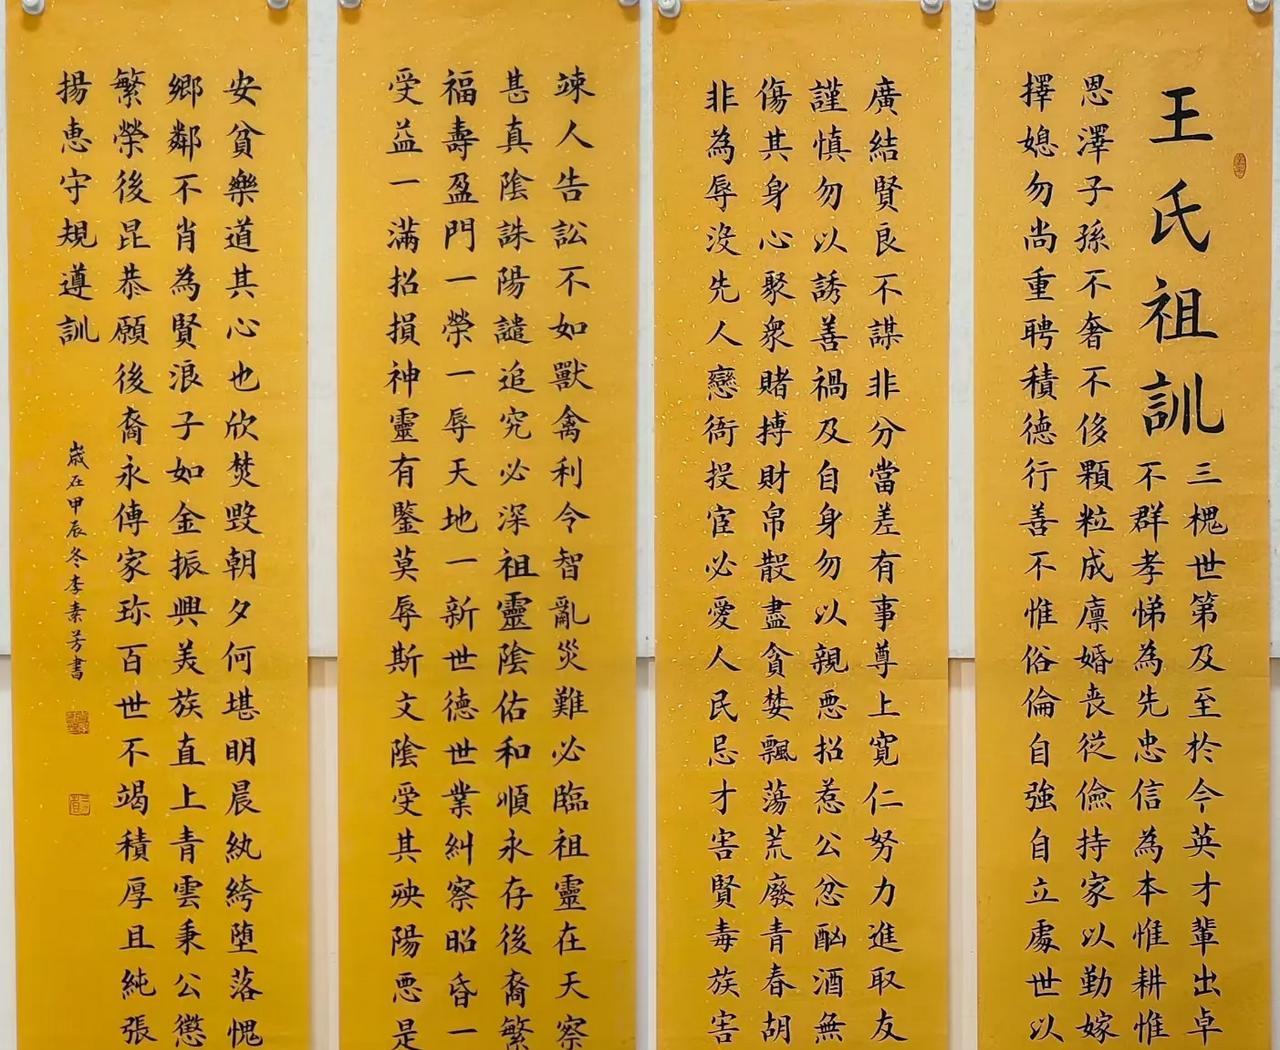 王氏祖訓
三槐世第及至於今英才輩出卓
不群孝悌為先忠信為本惟耕惟
恩澤子孫不奢不侈顆粒成廩婚喪從儉持家以勤嫁
擇媳勿尚重聘積德行善不惟俗倫自強自立處世以
廣結賢良不謀非分當差有事尊上寬仁努力進取友
謹慎勿以誘善禍及自身勿以親惡招惹公忿酗酒無
傷其身心聚衆賭搏財帛散盡貪婪飄蕩荒廢青春胡
非為辱沒先人戀衙投宦必愛人民忌才害賢毒族害
竦人告訟不如獸禽利令智亂災難必臨祖靈在天察
甚真陰誅陽譴追究必深祖靈陰佑和順永存後裔繁
福壽盈門一榮一辱天地一新世德世業糾察昭昏一
受益一滿招損神靈有鑒莫辱斯文陰受其殃陽惡是
安貧樂道其心也欣焚毀朝夕何堪明晨紈絝墮落愧
鄉鄰不肖為賢浪子如金振興美族直上青雲秉公懲
繁榮後昆恭願後裔永傳家珍百世不竭積厚且純張
揚惠守規遵訓
歲在甲辰冬李素芳書